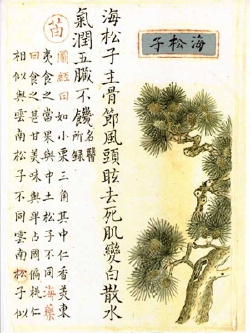 海松子
海松子主骨節風頭眩去死肌變白散水
氣潤五臟不饑名醫所錄
苗
圖經曰如小栗三角其中仁香美東
夷食之當果與中土松子不同海藥
曰食之甚甘美味與卑占國偏桃仁
相似與雲南松子不同雲南松子似